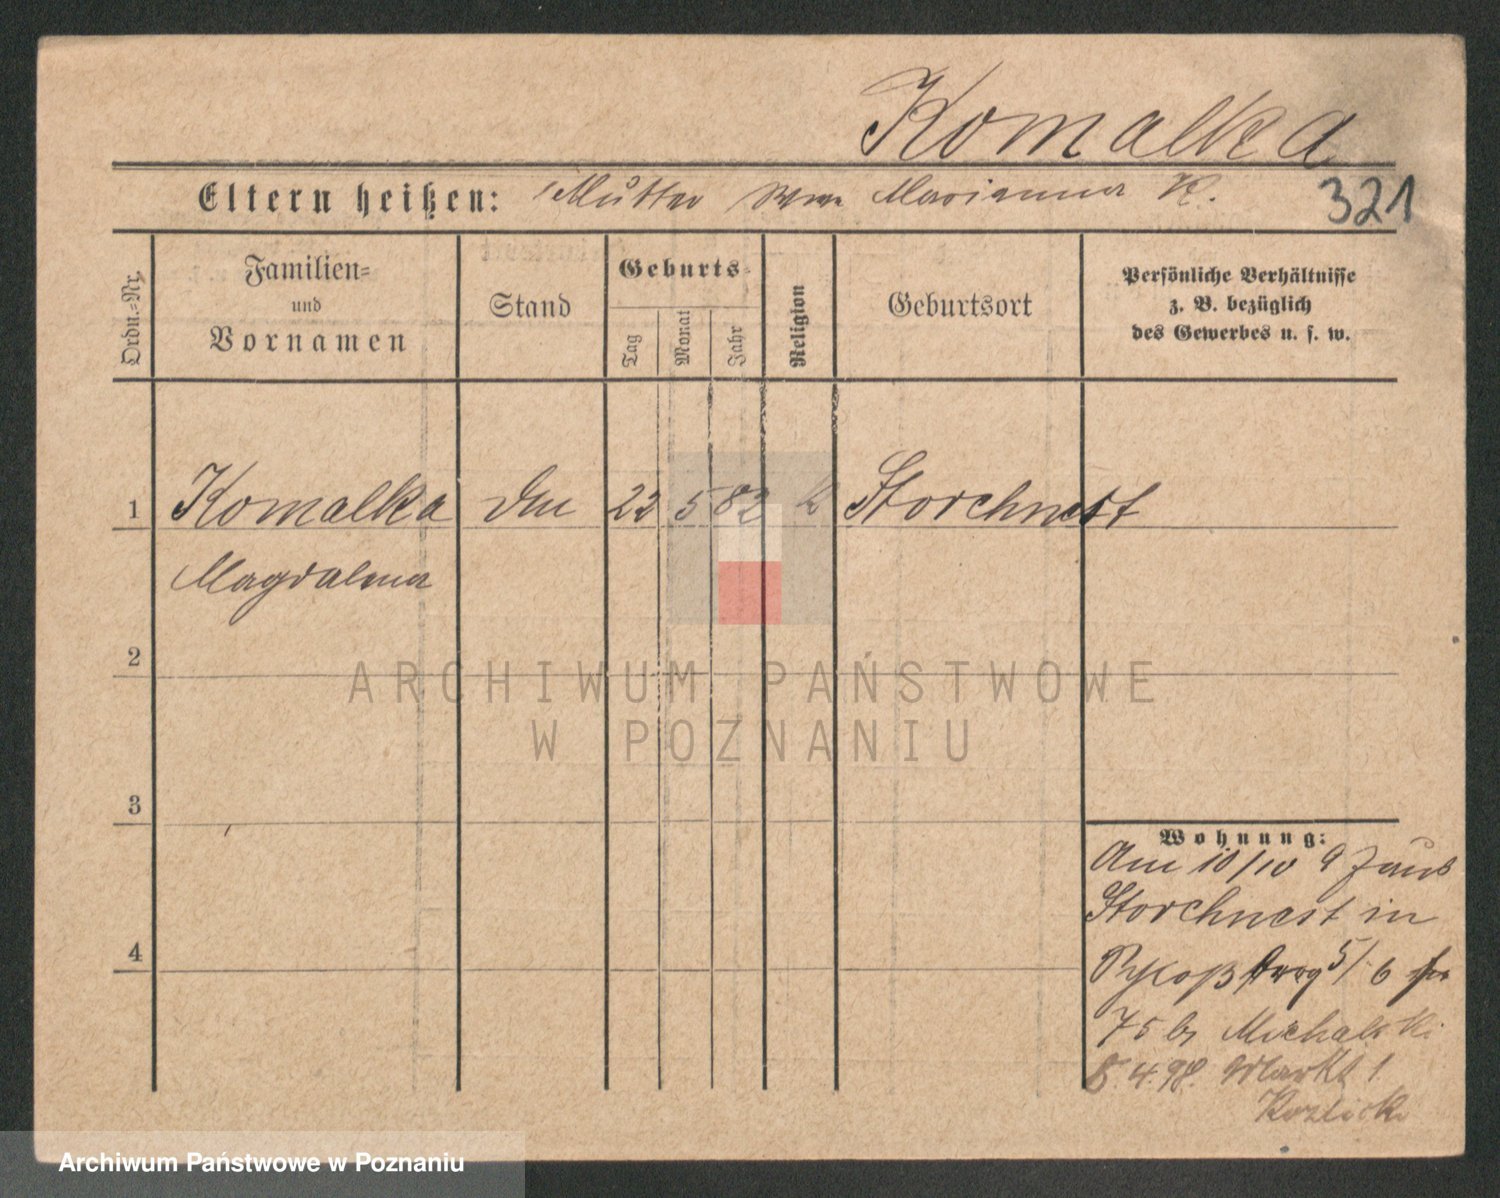 Komalka
Eltern heißen: Mutter Marianna K. 321
Ordn.=Nr.
Familien=
und
Vornamen
Stand
Geburts=
Tag
Monat
Jahr
Religion
Geburtsort
Persönliche Verhältnisse
z. B. bezüglich
des Gewerbes u. s. w.
1 Komalka 5 82 k Storchnest
Magdalena
2
ARCHIWUM PAŃSTWOWE
W POZNANIU
3
Wohnung:
Am 10/10 9
Storchnest in
4
5/6
75 Michalski
8.4.98. Markt 1
Kozlicki
Archiwum Państwowe w Poznaniu